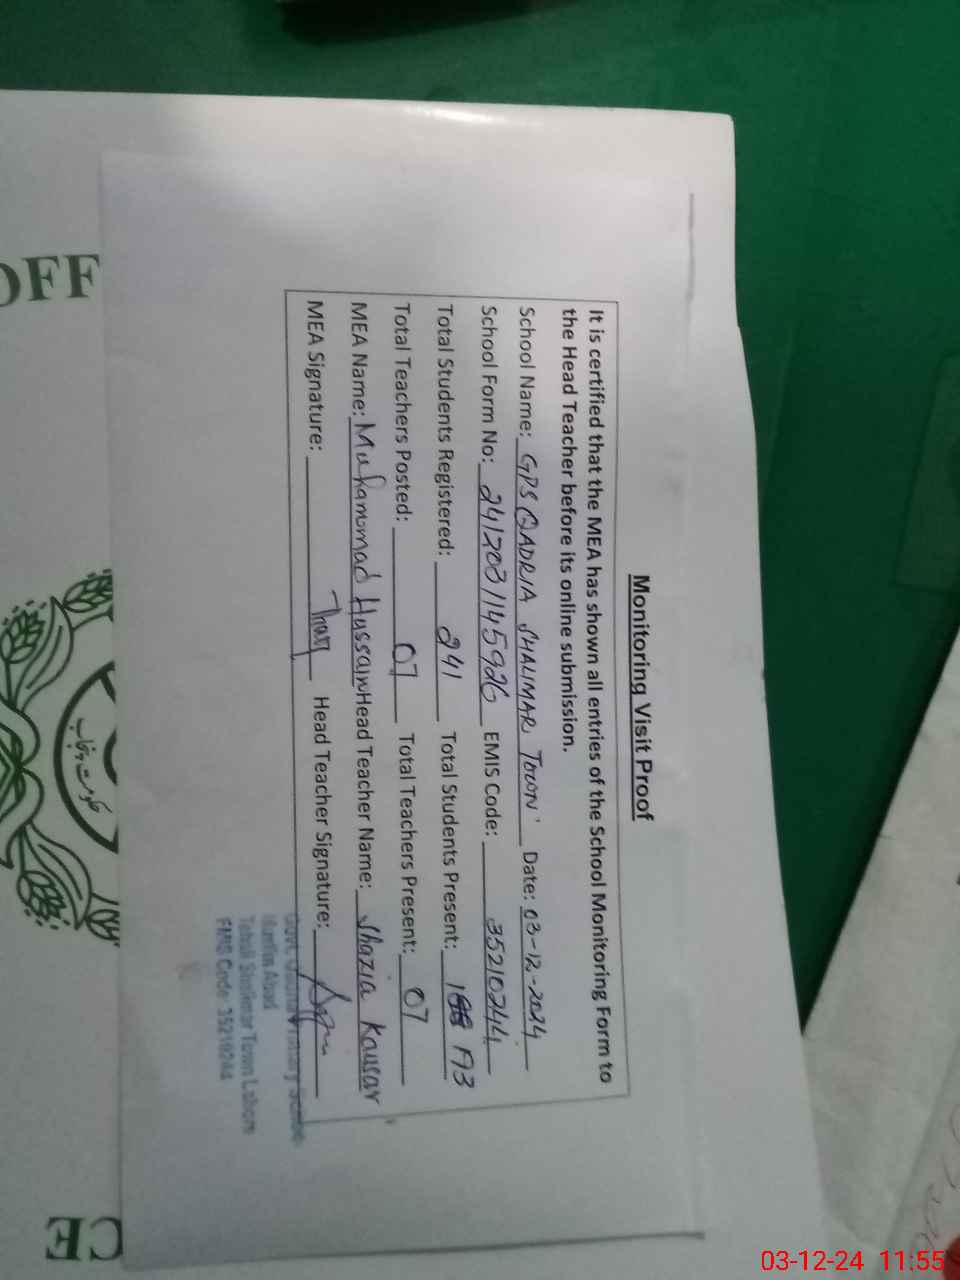 Monitoring Visit Proof
It is certified that the MEA has shown all entries of the School Monitoring Form to
the Head Teacher before its online submission.
School Name: GPS QADRIA SHALIMAR TOWN Date: 03-12-2024
School Form No: 241203145926 EMIS Code: 35210244
Total Students Registered: 241 Total Students Present: 193
Total Teachers Posted: 07 Total Teachers Present: 07
MEA Name: Muhammad Hussain Head Teacher Name: Shazia Kausar
MEA Signature: Head Teacher Signature:
Govt. Primary
Abad
Tehsil Shalimar Town Lahore
EMIS Code 35210244
OFF
حکومت پنجاب
CE
03-12-24 11:55